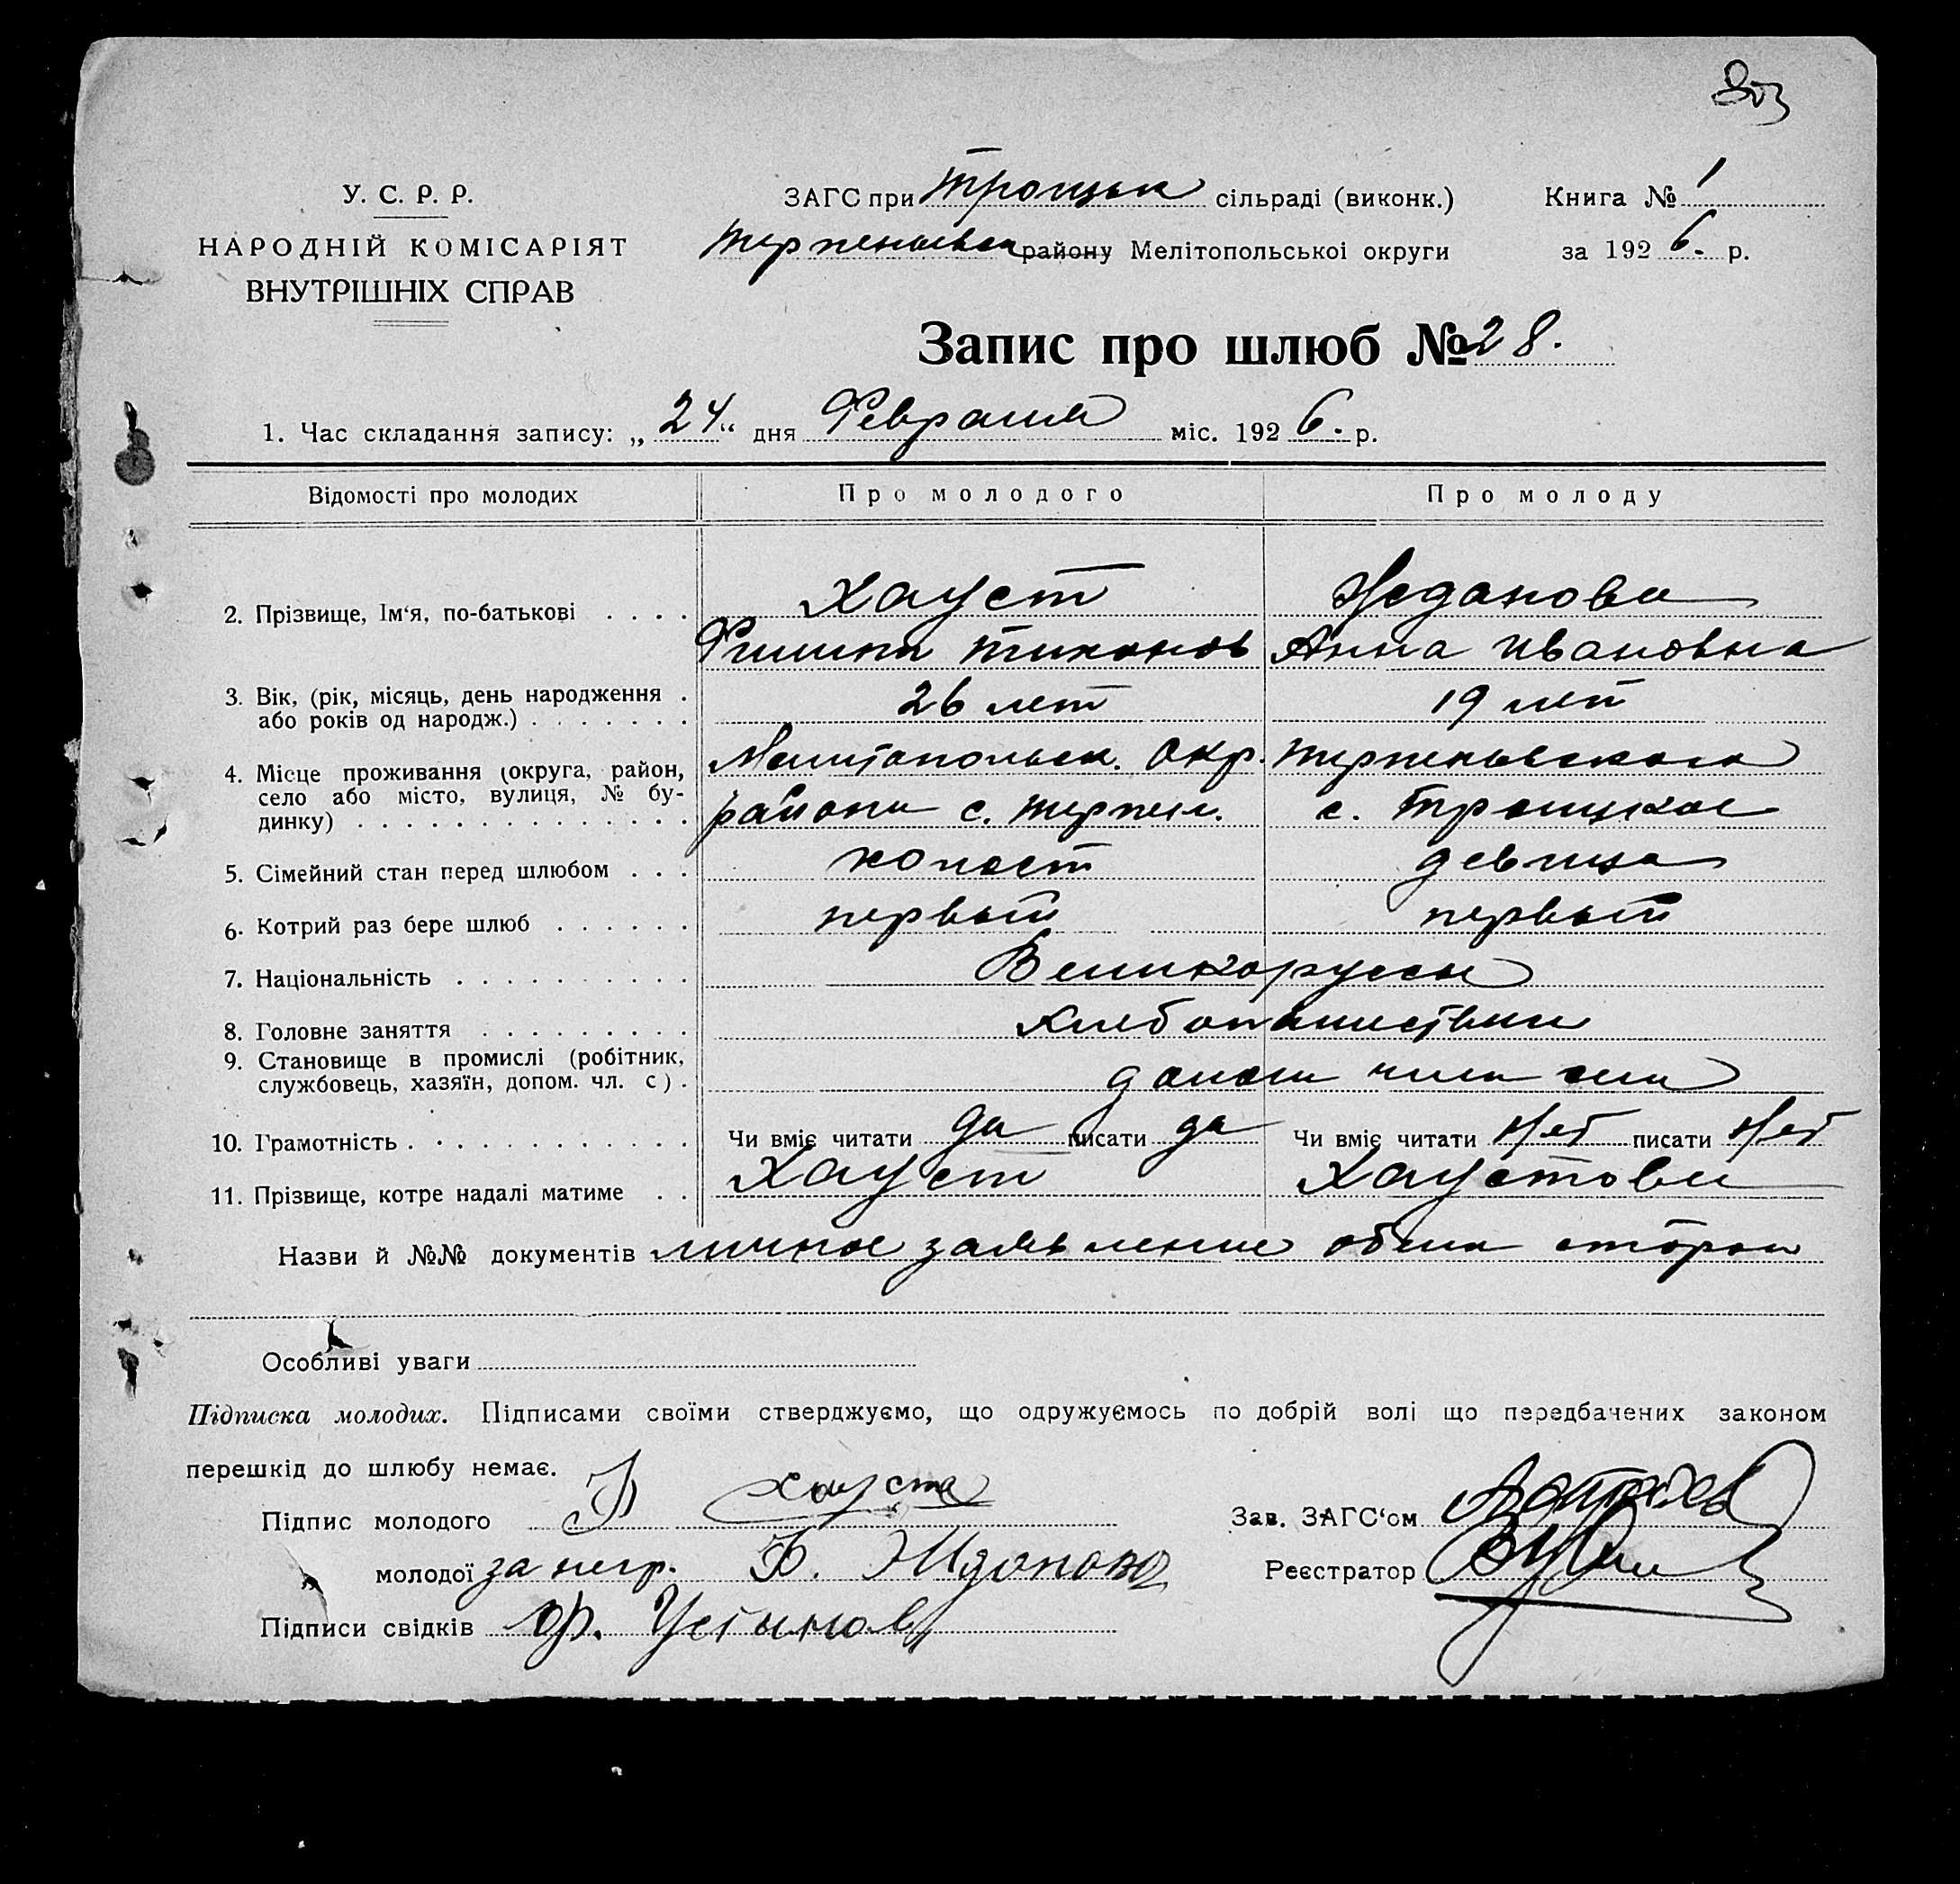 803
У. С. Р. Р.
НАРОДНІЙ КОМІСАРІЯТ
ВНУТРІШНІХ СПРАВ
ЗАГС при Троицьк сільраді (виконк.)
району Мелітопольської округи
Книга № 1
за 1926. р.
Запис про шлюб № 28.
1. Час складання запису: „24" дня Февраля міс. 1926. р.
Відомості про молодих Про молодого Про молоду
2. Прізвище, Ім'я, по-батькові . . . . Хауст Жданова
Филипп Тихонов Анна Ивановна
3. Вік, (рік, місяць, день народження . 26 лет 19 лет
або років од народж.) . . . . . . .
4. Місце проживання (округа, район, Мелитопольск. Окр. Терпеньевского
село або місто, вулиця, № бу- района с. Терпен. с. Троицкое
динку) . . . . . . . . . . . . . .
5. Сімейний стан перед шлюбом . . . холост девица
6. Котрий раз бере шлюб . . . . . . первый первый
7. Національність . . . . . . . . . . Великоруссы
8. Головне заняття . . . . . . . . . Хлебопашеством
9. Становище в промислі (робітник,
службовець, хазяїн, допом. чл. с) . член
10. Грамотність . . . . . . . . . . . . Чи вміє читати да писати да Чи вміє читати Нет писати Нет
11. Прізвище, котре надалі матиме . . Хауст Хаустова
Назви й №№ документів личное заявление обеих сторон
Особливі уваги
Підписка молодих. Підписами своїми стверджуємо, що одружуємось по добрій волі що передбачених законом
перешкід до шлюбу немає.
Підпис молодого Хауста
Зав. ЗАГС'ом
молодої за негр. Жданова
Реєстратор
Підписи свідків Устинов